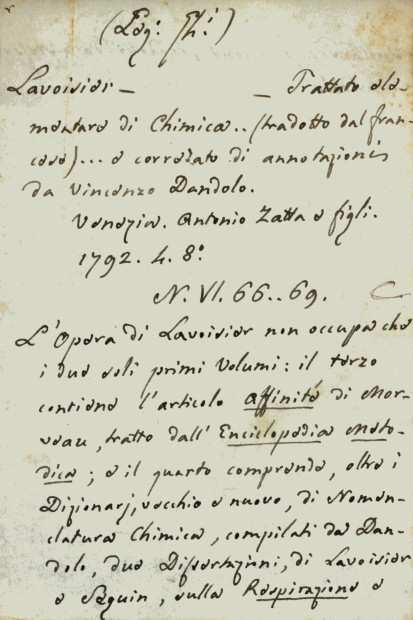 Lavoisier — — Trattato ele-
mentare di Chimica.. (tradotto dal fran-
cese)... e corredato di annotazioni
da Vincenzo Dandolo.
Venezia. Antonio Zatta e figli.
1792. 4. 8.°
N. VI. 66..69.
L'Opera di Lavoisier non occupa che
i due soli primi Volumi: il terzo
contiene l'articolo Affinità di Mor-
veau, tratto dall' Enciclopedia Meto-
dica; e il quarto comprende, oltre i
Dizionarj, vecchio e nuovo, di Nomen-
clatura Chimica, compilati da Dan-
dolo, due Dissertazioni, di Lavoisier
e Seguin, sulla Respirazione e